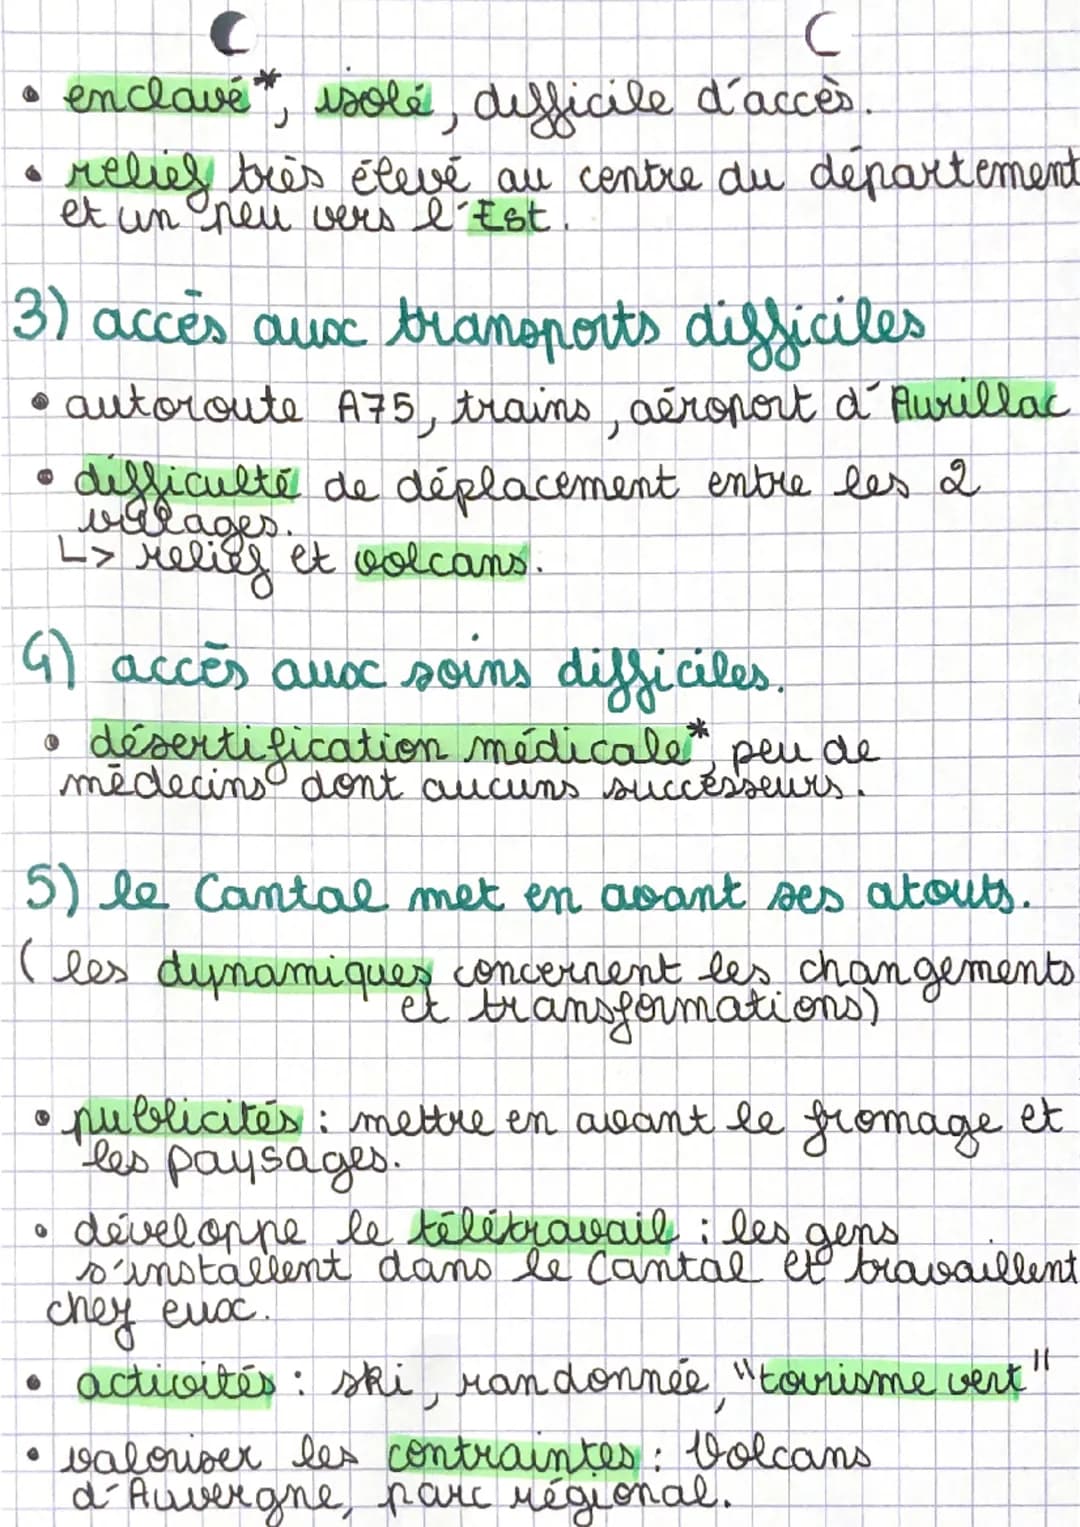 • enclavé*, isolé, difficile d'accès.
• relief très élevé au centre du département
et un peu vers l'Est.
3) accès aux transports difficiles
• autoroute A75, trains, aéroport d'Aurillac
• difficulté de déplacement entre les 2
villages.
↳ relief et volcans.
4) accès aux soins difficiles.
• désertification médicale*, peu de
médecins dont aucuns successeurs.
5) le Cantal met en avant ses atouts.
(les dynamiques concernent les changements
et transformations)
• publicités : mettre en avant le fromage et
les paysages.
• développe le télétravail : les gens
s'installent dans le Cantal et travaillent
chez eux.
• activités : ski, randonnée, "tourisme vert"
• valoriser les contraintes : Volcans
d'Auvergne, parc régional.